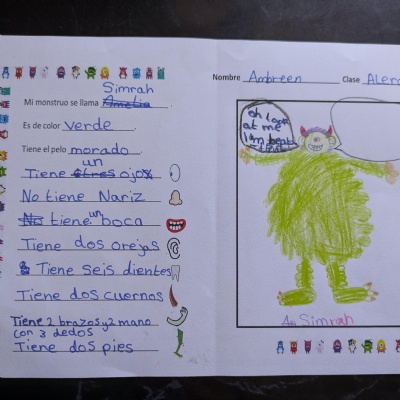 Simrah
Mi monstruo se llama Amelia.
Es de color verde.
Tiene el pelo morado.
un
Tiene otros ojox
No tiene Nariz
un
No tiene boca
Tiene dos orejas
Tiene seis dientes
Tiene dos cuernos
Tiene 2 brazos y 2 mano
con 3 dedos
Tiene dos pies
Nombre Ambreen Clase Aler
oh look
at me
I'm
Simrah